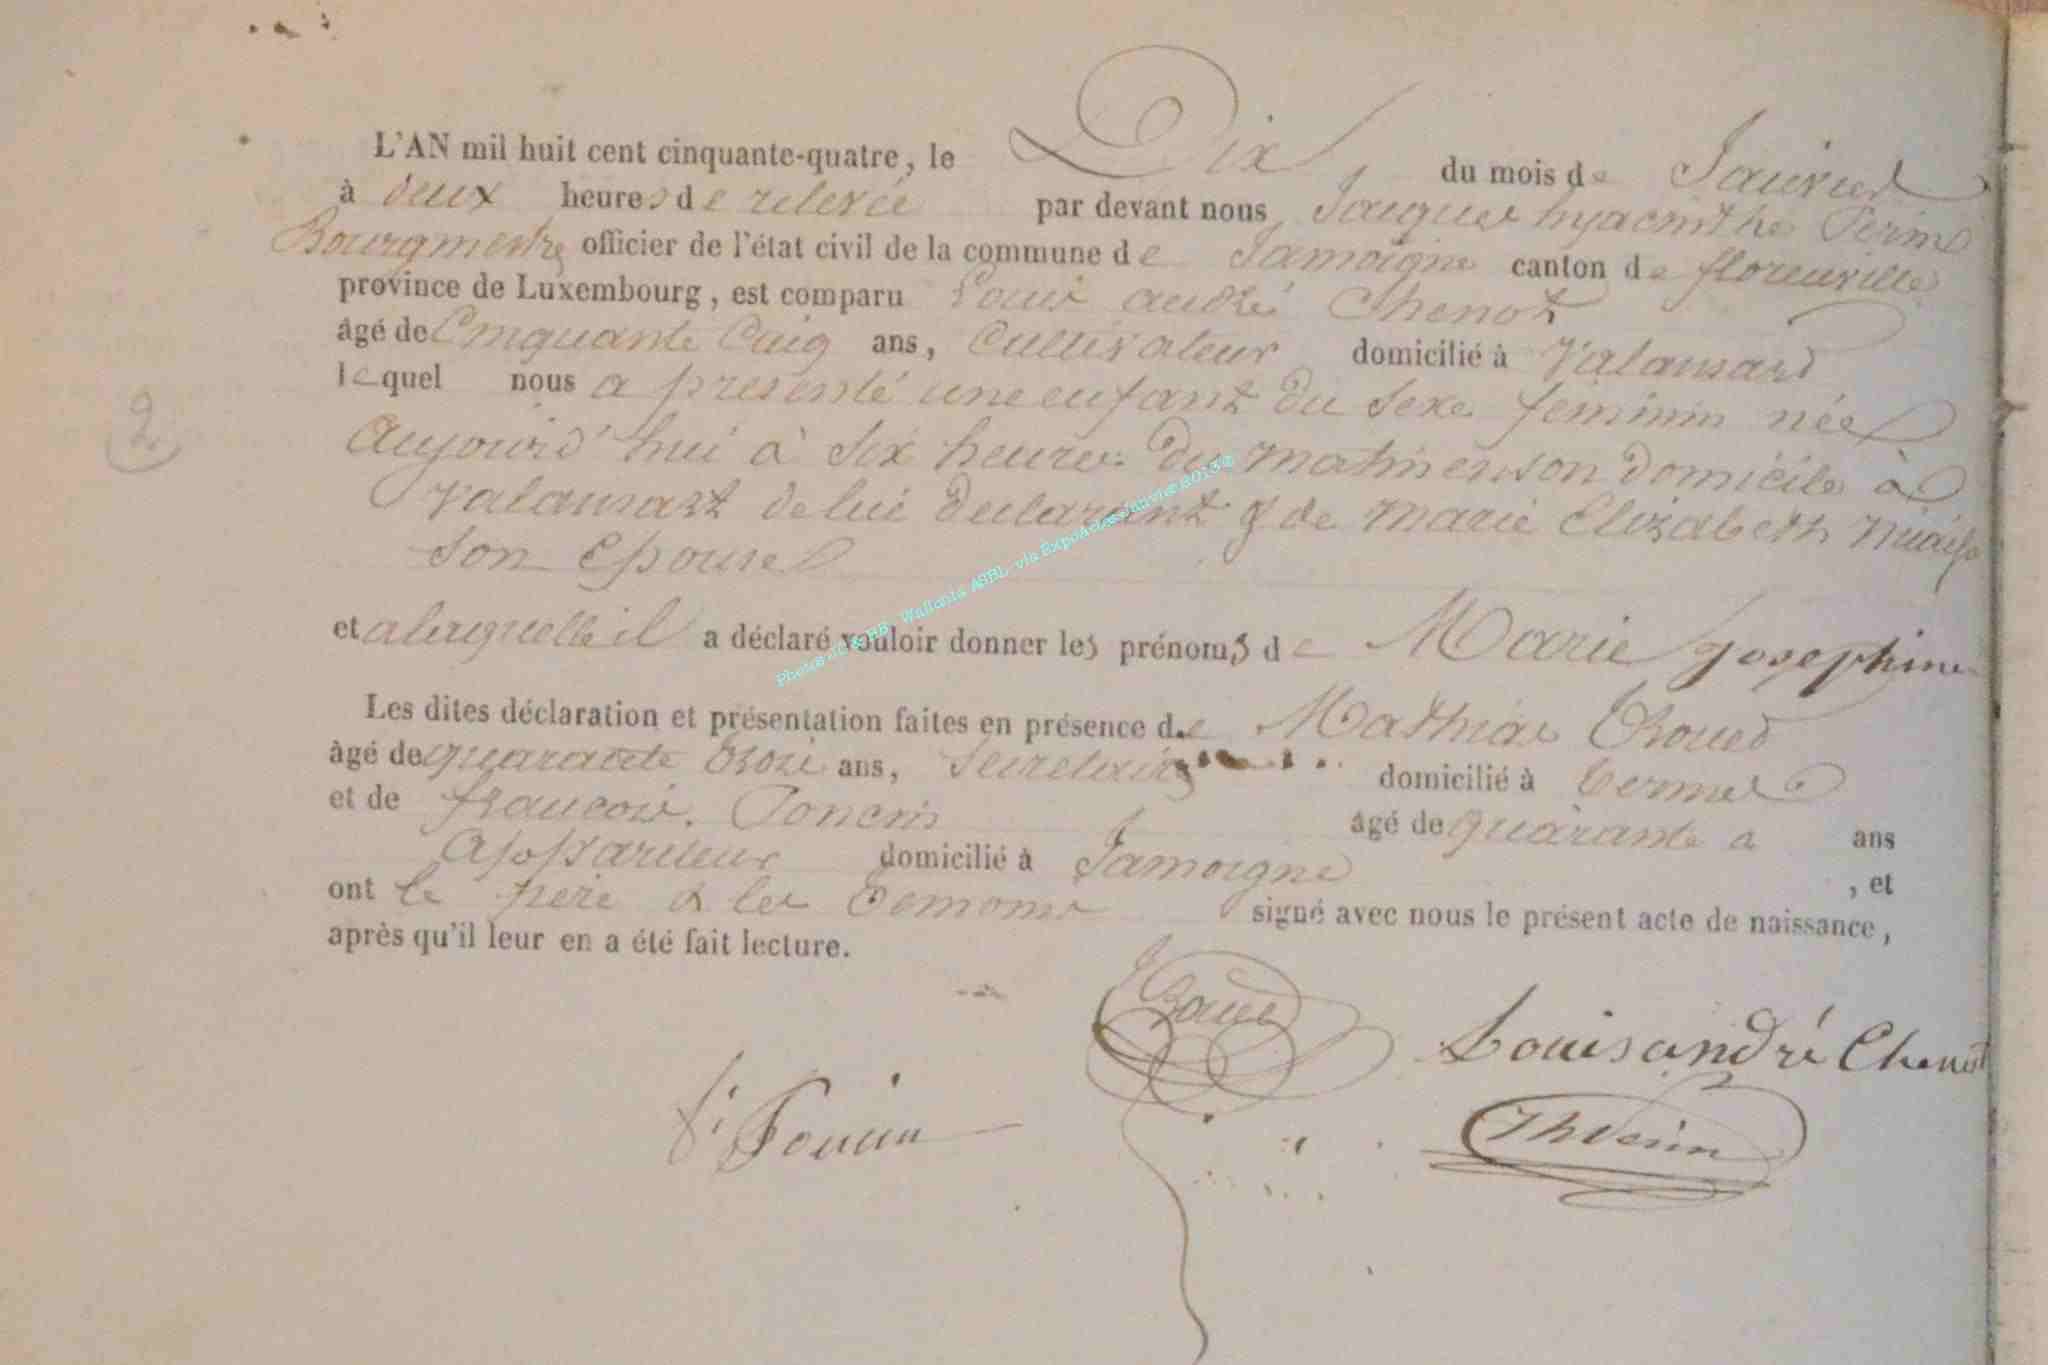 L'AN mil huit cent cinquante-quatre, le Dix du mois de Janvier
à deux heures de relevée par devant nous Jacques hyacinthe
Bourgmestre officier de l'état civil de la commune de Jamoigne canton de florenville
province de Luxembourg, est comparu Louis andré Chenot
âgé de Cinquante Cinq ans, Cultivateur domicilié à Valansard
lequel nous a présenté une enfant du sexe feminin née
Aujourd'hui à Six heures du matin en son domicile à
Valansart de lui declarant & de marie Elizabeth
son Epouse
2
et a laquelle il a déclaré vouloir donner les prénoms de Marie Josephine
Les dites déclaration et présentation faites en présence de Mathias
âgé de quarante trois ans, Secretaire domicilié à termes
et de francois Poncin âgé de quarante a ans
Appariteur domicilié à Jamoigne , et
ont le père & les temoins signé avec nous le présent acte de naissance,
après qu'il leur en a été fait lecture.
Louis andré Chenot
Photos JL & BB - Wallonia ASBL via ExpoActes Janvier 2013